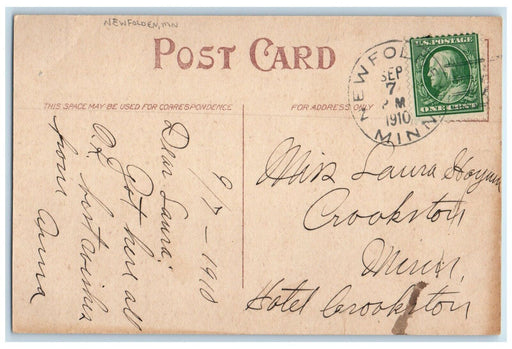 NEWFOLDEN, MN
POST CARD
THIS SPACE MAY BE USED FOR CORRESPONDENCE
FOR ADDRESS ONLY
NEWFOL
SEP
7
P M
1910
MINN
U.S. POSTAGE
ONE CENT
9/7 – 1910
Dear Laura;
Got here all
best wishes
from Anna
Miss Laura
Crookston
Minn,
Hotel Crookston